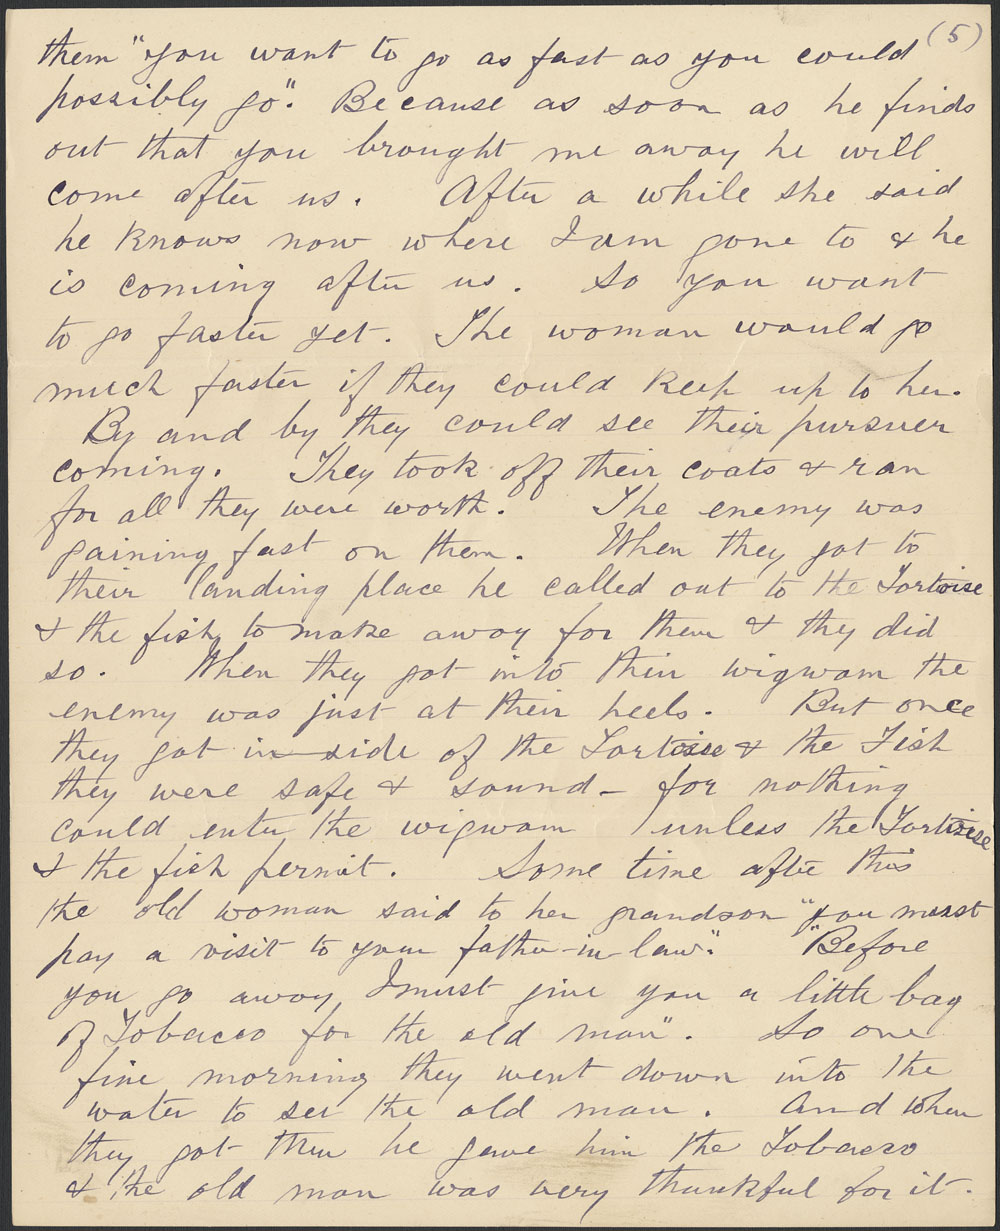 (5)
them "you want to go as fast as you could
possibly go". Because as soon as he finds
out that you brought me away he will
come after us. After a while she said
he knows now where I am gone to & he
is coming after us. So you want
to go faster yet. The woman would go
much faster if they could keep up to her.
By and by they could see their pursuer
coming. They took off their coats & ran
for all they were worth. The enemy was
gaining fast on them. When they got to
their landing place he called out to the Tortoise
& the fish, to make away for them & they did
so. When they got into their wigwam the
enemy was just at their heels. But once
they got in-side of the Tortoise & the Fish
they were safe & sound - for nothing
could enter the wigwam unless the Tortoise
& the fish permit. Some time after this
the old woman said to her grandson "you must
pay a visit to your father-in-law". "Before
you go away, I must give you a little bag
of Tobacco for the old man". So one
fine morning they went down into the
water to see the old man. And when
they got there he gave him the Tobacco
& the old man was very thankful for it.